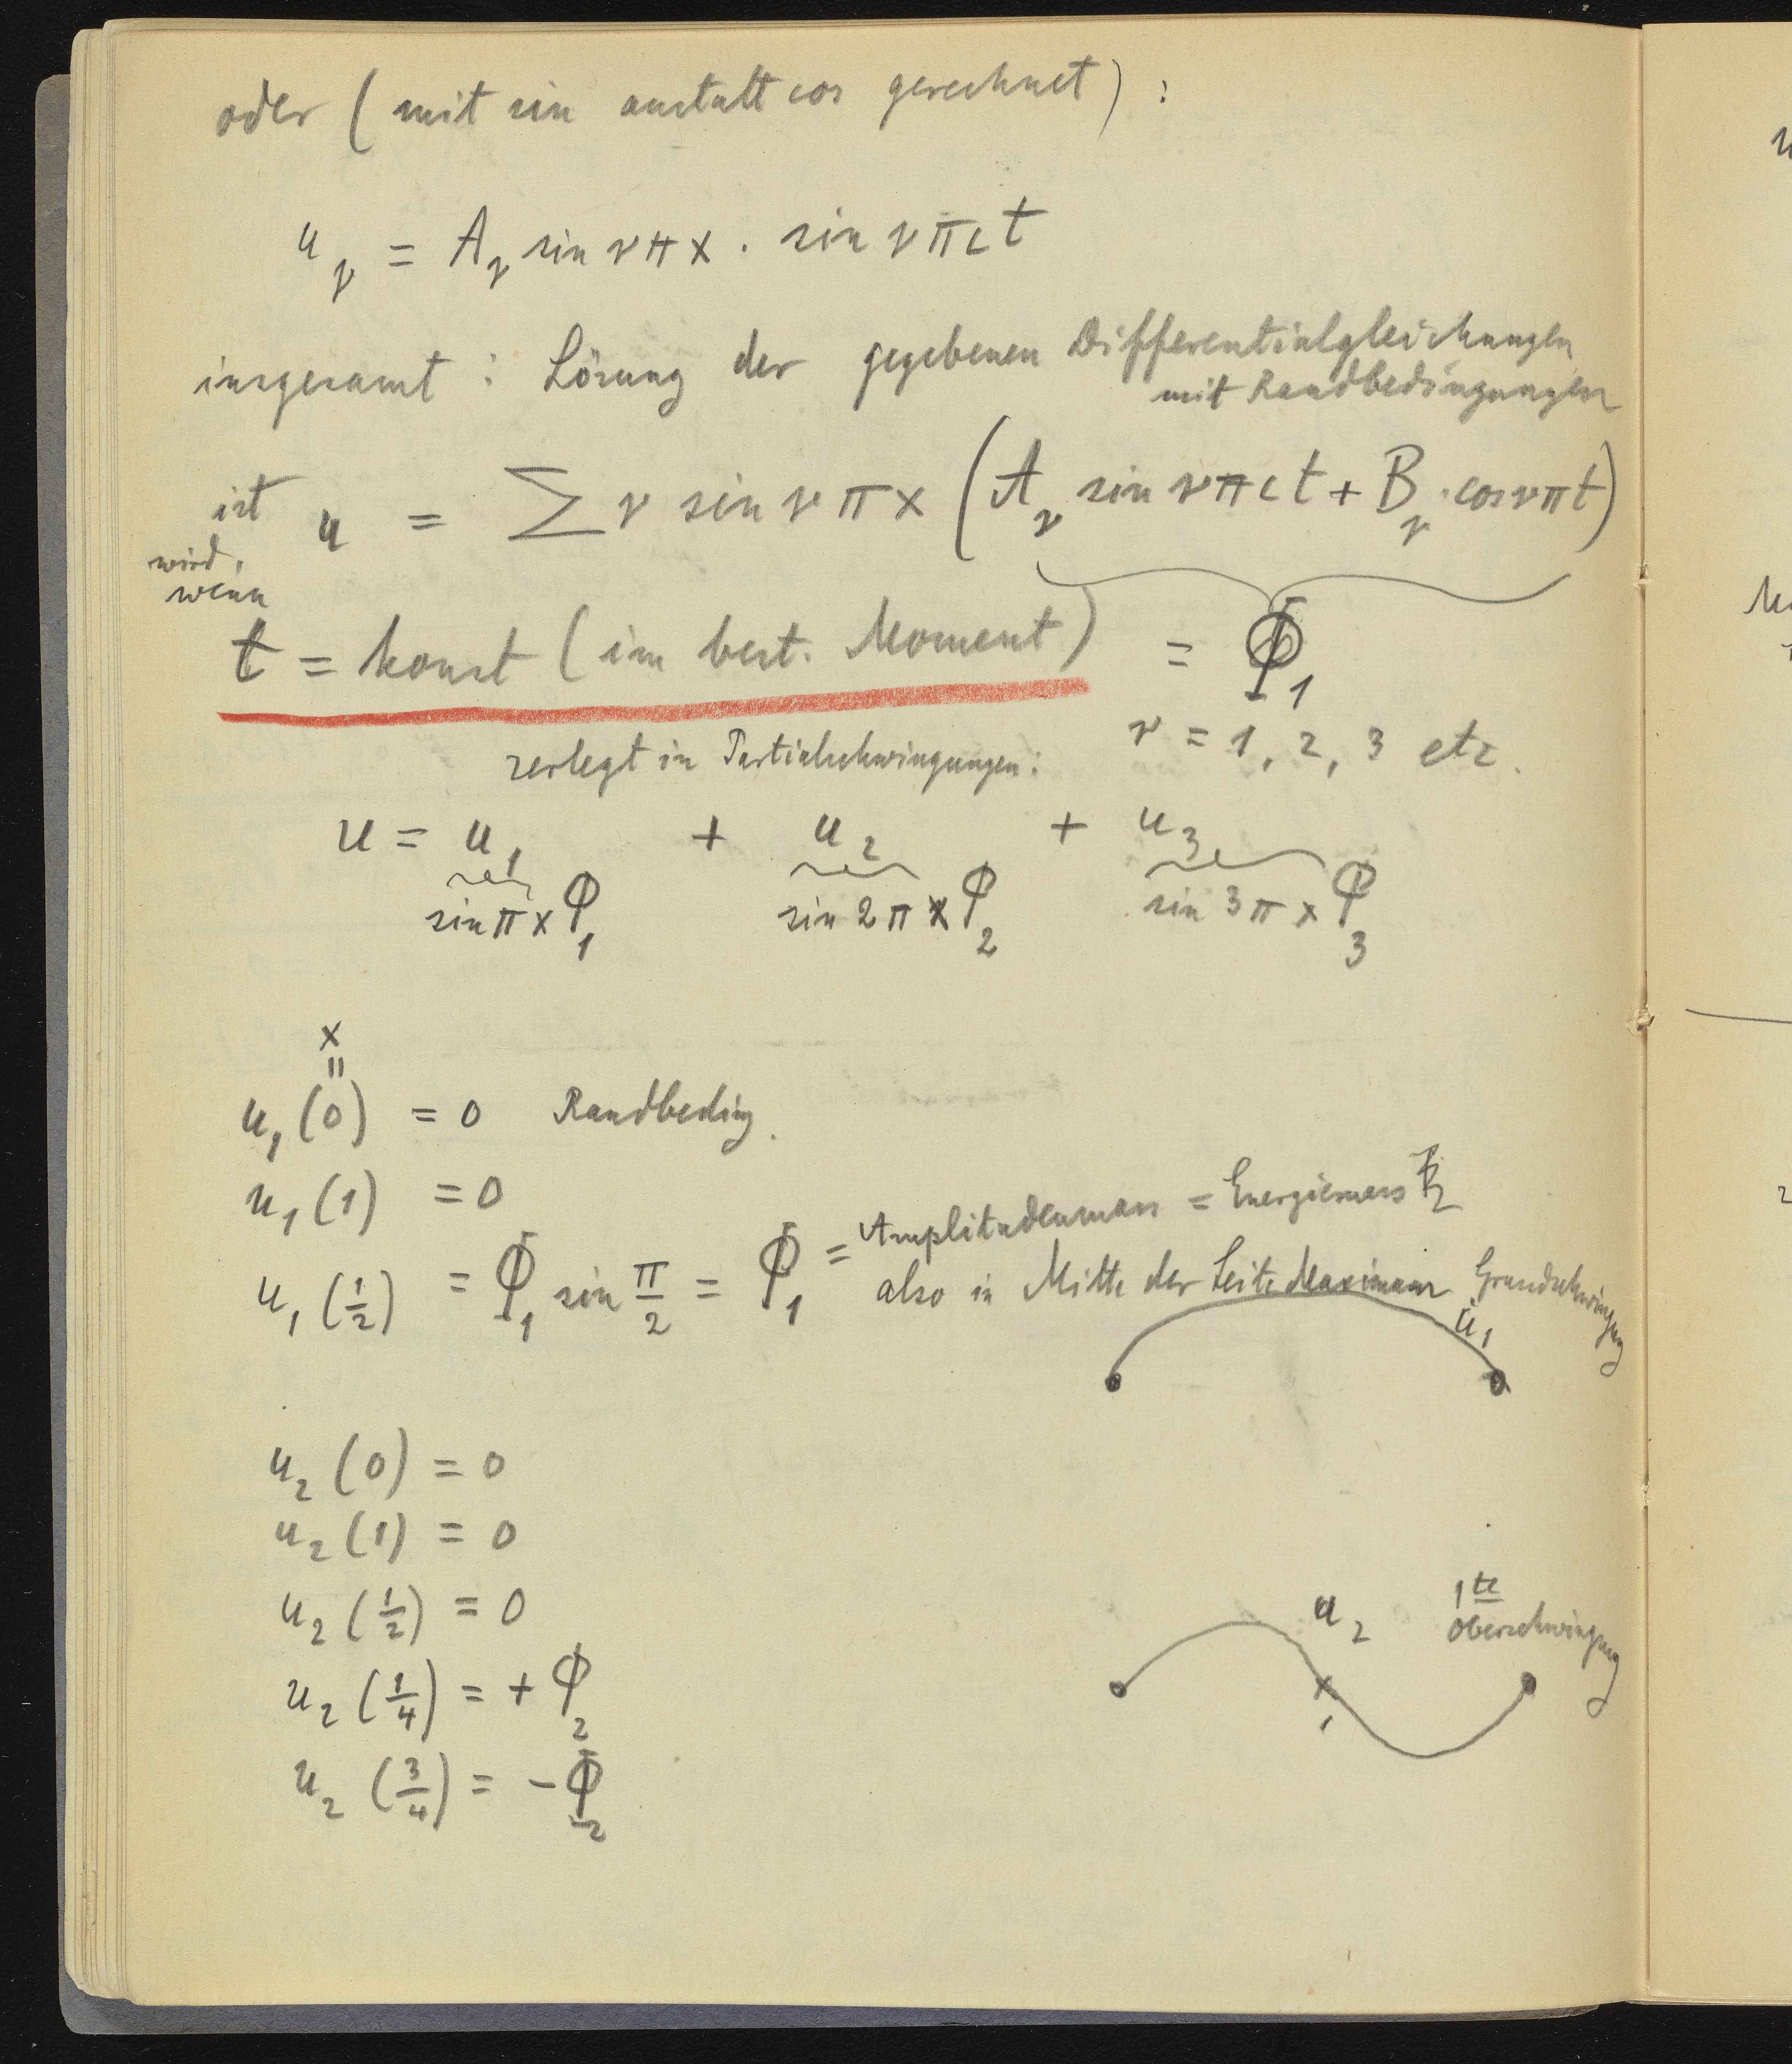 oder (mit sin anstatt cos gerechnet) :
u_ν = A_ν sin νπx · sin νπct
insgesamt : Lösung der gegebenen Differentialgleichungen
mit Randbedingungen
ist u = Σ ν sin νπx (A_ν sin νπct + B_ν · cos νπt)
wird,
wenn
t = konst (im best. Moment) = Φ_1
ν = 1, 2, 3 etc.
zerlegt in Partialschwingungen:
u = u_1 + u_2 + u_3
sin πx Φ_1 sin 2πx Φ_2 sin 3πx Φ_3
x
=
u_1 (0) = 0 Randbeding.
u_1 (1) = 0
u_1 (1/2) = Φ_1 sin π/2 = Φ_1 = Amplitudenmass = Energiemass
also in Mitte der Seite Maximum Grundschwingung
u_1
u_2 (0) = 0
u_2 (1) = 0
u_2 (1/2) = 0
u_2 1te
Oberschwingung
u_2 (1/4) = + Φ_2
u_2 (3/4) = - Φ_2